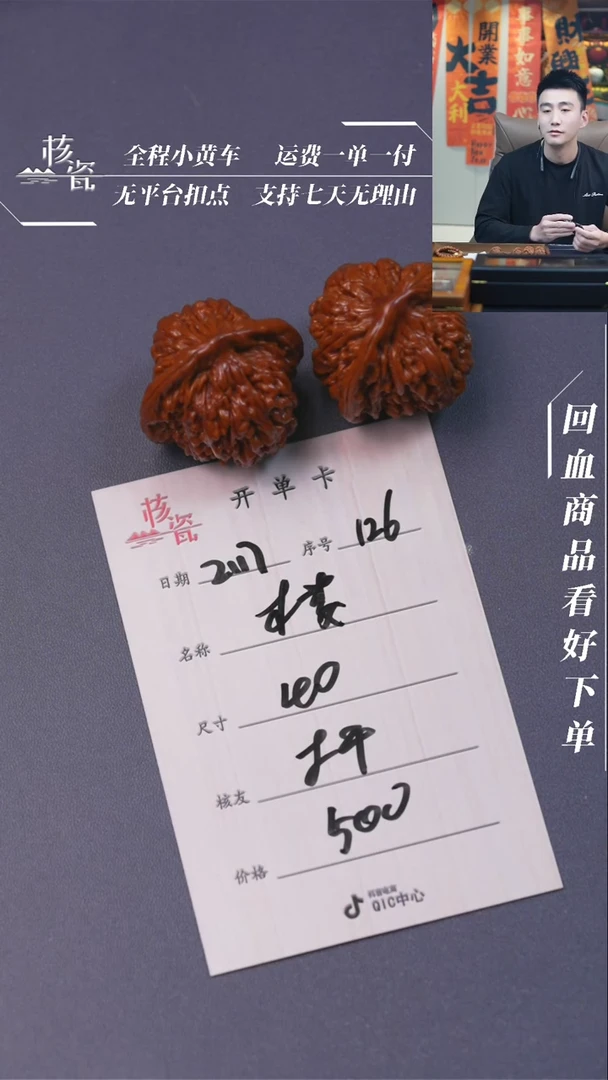 核瓷
全程小黄车 运费一单一付
无平台扣点 支持七天无理由
開業
大吉
大利
事事如意
心
財
回血商品看好下单
核瓷
开单卡
日期 2117 序号 126
名称
尺寸 40
核友
价格 500
抖音电商
QIC中心